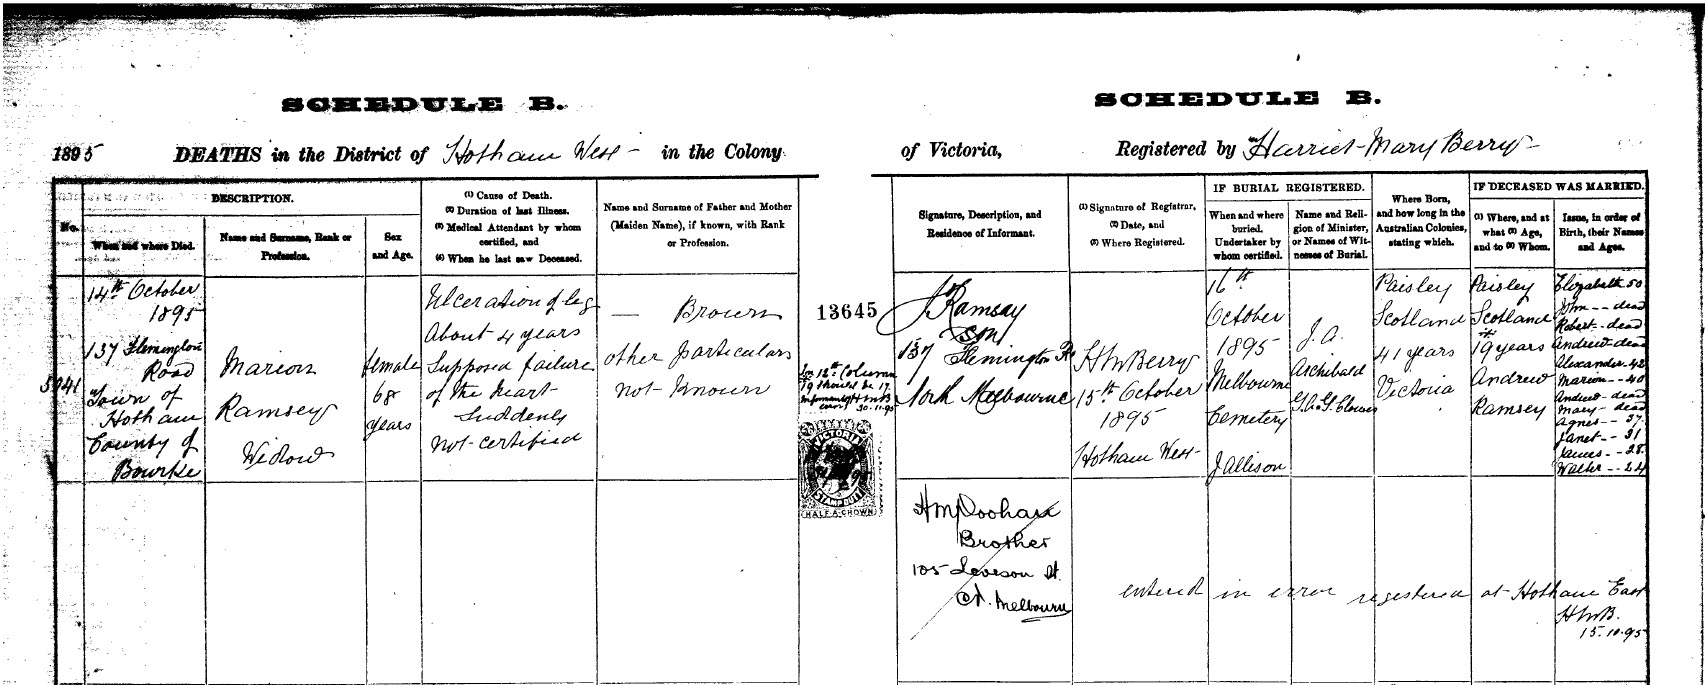 SCHEDULE B.
SCHEDULE B.
1895 DEATHS in the District of Hotham West in the Colony
of Victoria, Registered by Harriet Mary Berry
No.
DESCRIPTION.
When and where Died.
Name and Surname, Rank or
Profession.
Sex
and Age.
(1) Cause of Death.
(2) Duration of last Illness.
(3) Medical Attendant by whom
certified, and
(4) When he last saw Deceased.
Name and Surname of Father and Mother
(Maiden Name), if known, with Rank
or Profession.
Signature, Description, and
Residence of Informant.
(1) Signature of Registrar,
(2) Date, and
(3) Where Registered.
IF BURIAL REGISTERED.
When and where
buried.
Undertaker by
whom certified.
Name and Reli-
gion of Minister,
or Names of Wit-
nesses of Burial.
Where Born,
and how long in the
Australian Colonies,
stating which.
IF DECEASED WAS MARRIED.
(1) Where, and at
what (2) Age,
and to (3) Whom.
Issue, in order of
Birth, their Names
and Ages.
5941
14th October
1895
137 Flemington
Road
Town of
Hotham
County of
Bourke
Marion
Ramsey
Widow
female
68
years
Ulceration of leg
About 4 years
Supposed failure
of the heart
Suddenly
not certified
— Brown
other particulars
not known
13645
In 12th Column
19 should be 17.
HMB
30.11.95
VICTORIA
STAMP DUTY
HALF-A-CROWN
J Ramsay
Son
137 Flemington Rd
North Melbourne
HMBerry
15th October
1895
Hotham West
16th
October
1895
Melbourne
Cemetery
J Allison
J. A.
Archibald
Paisley
Scotland
41 years
Victoria
Paisley
Scotland
19 years
Andrew
Ramsey
Elizabeth 50
John -- dead
Robert -- dead
Andrew dead
Alexander 42
Marion -- 40
Andrew - dead
Mary - dead
Agnes -- 37
Janet -- 31
James -- 28
Walter -- 24
Brother
105 Leveson St.
N. Melbourne
entered in error registered at Hotham East
HMB.
15.10.95